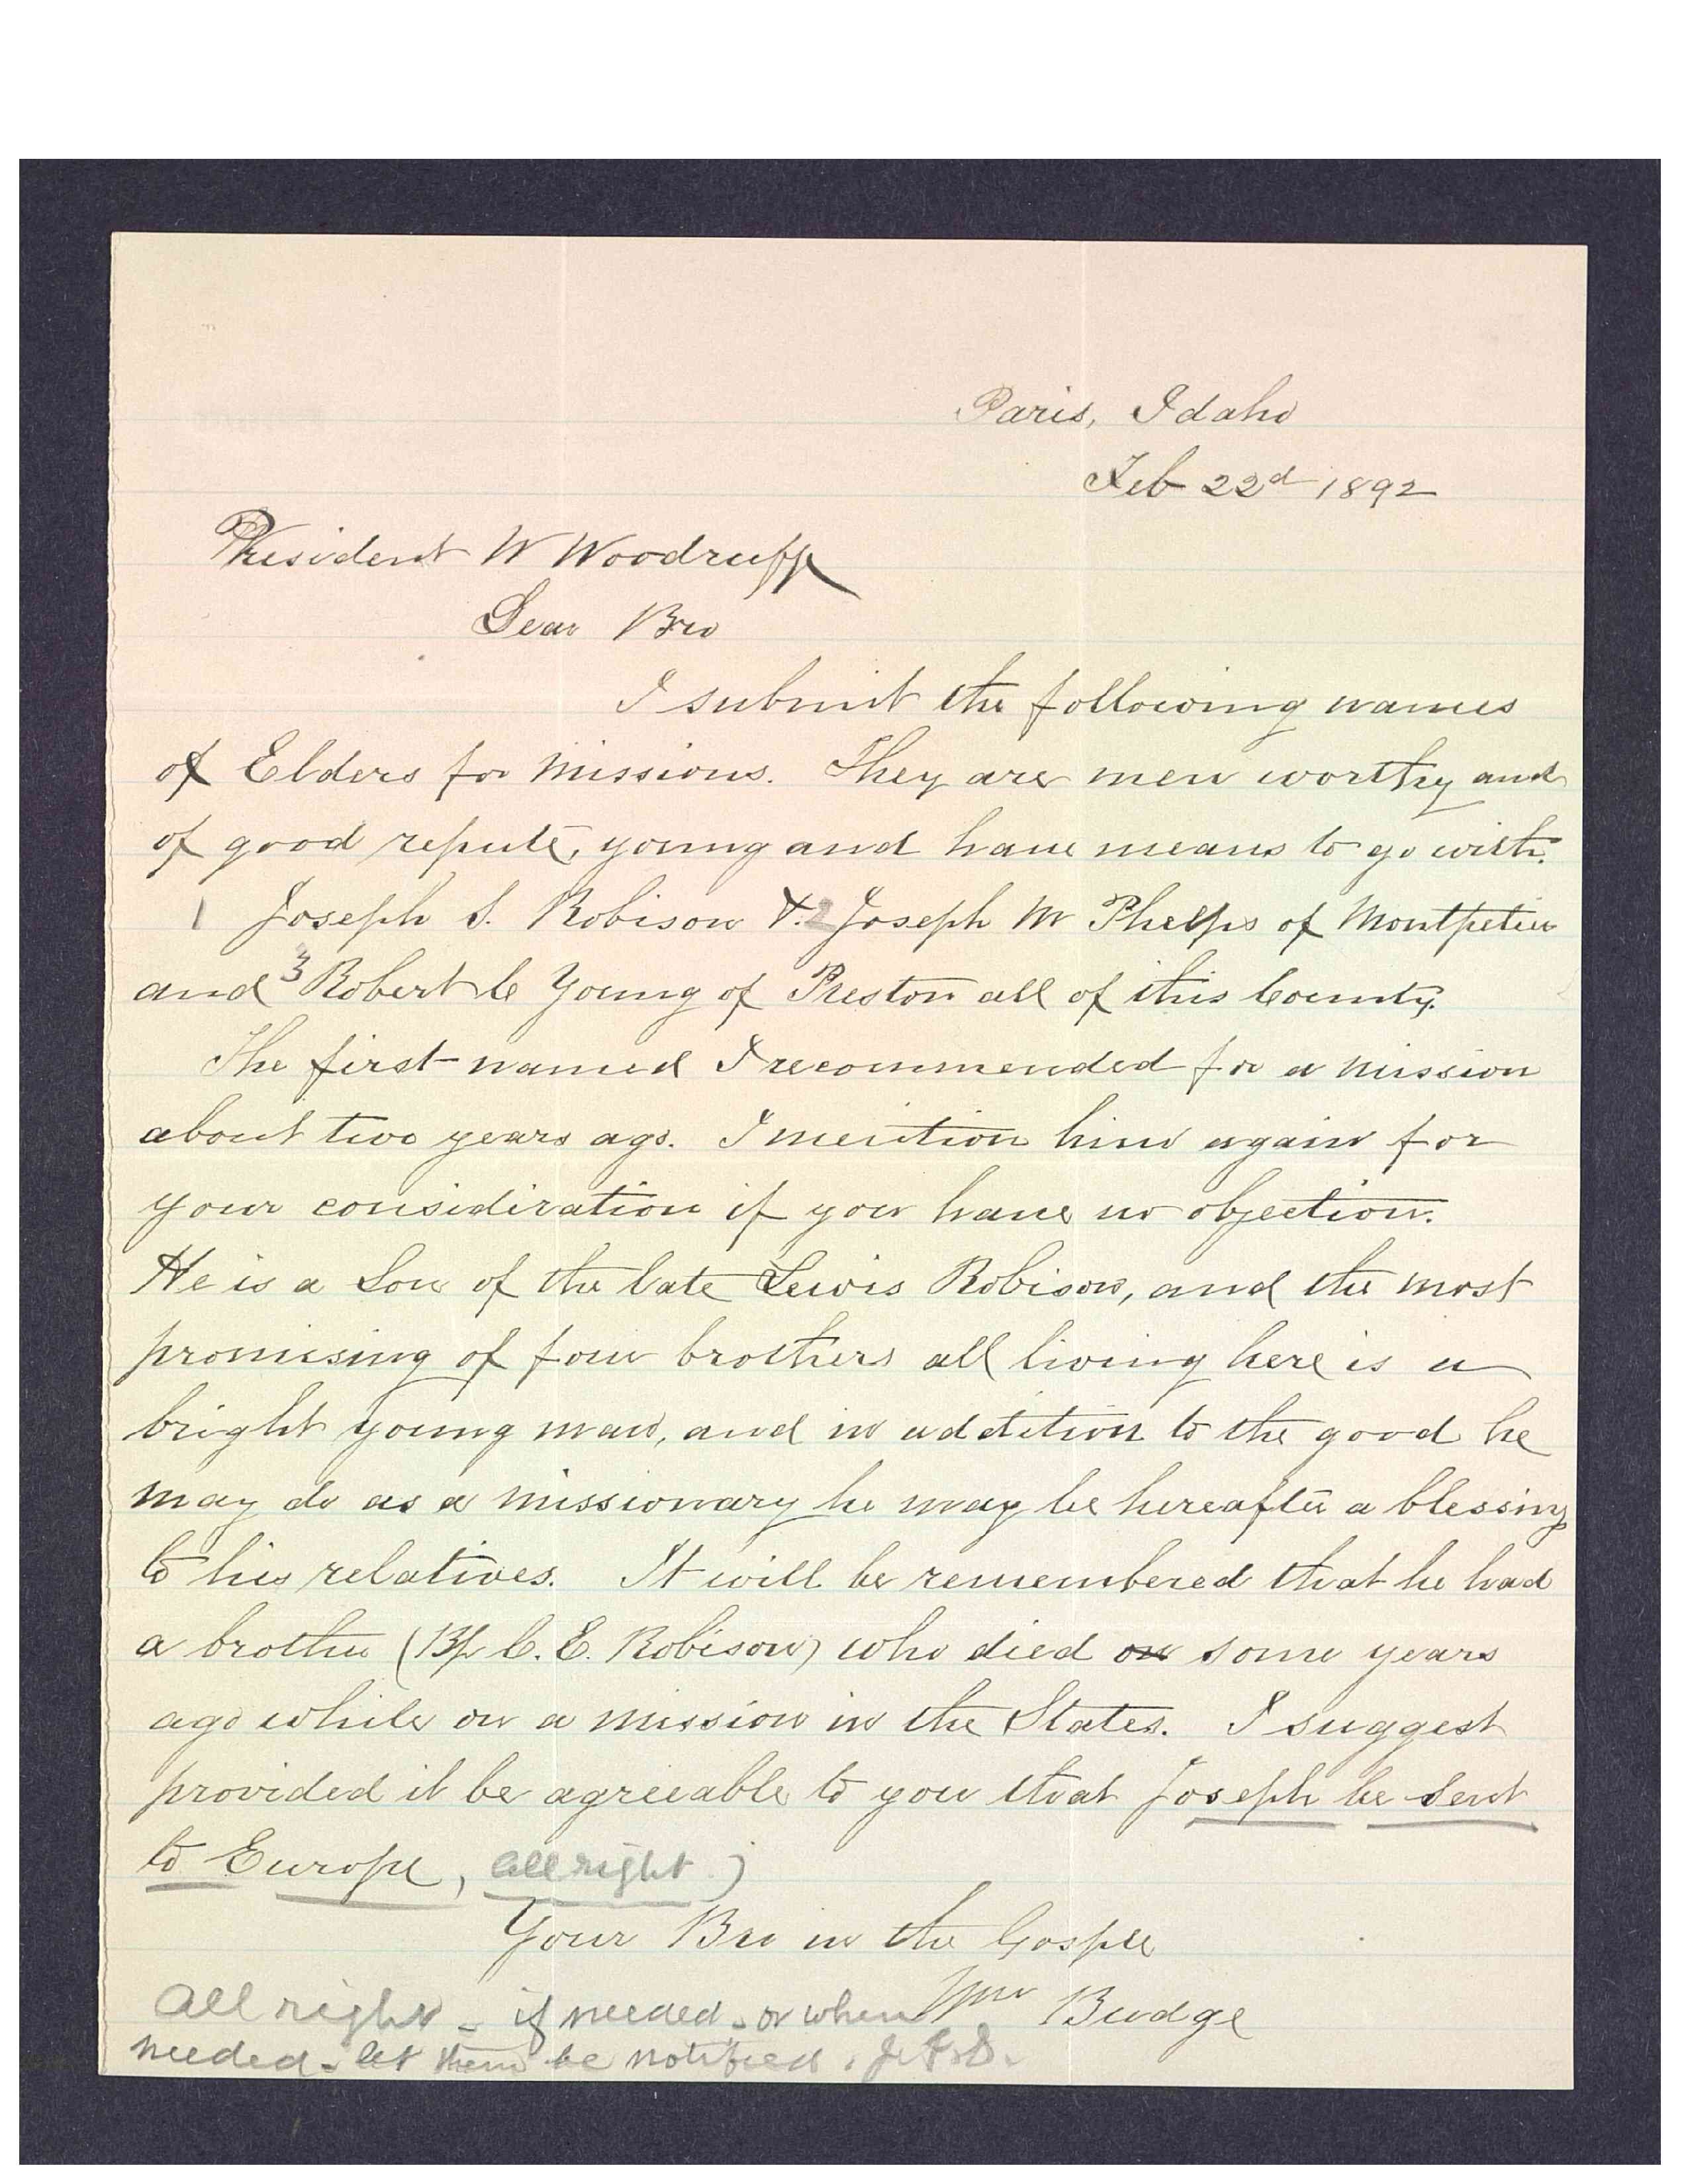 Paris, Idaho
Feb 22d 1892
President W Woodruff
Dear Bro
I submit the following names
of Elders for missions. They are men worthy and
of good repute, young and have means to go with.
1 Joseph S. Robison &. 2 Joseph M Phelps of Montpelier
and 3 Robert C Young of Preston all of this County.
The first named I recommended for a mission
about two years ago. I mention him again for
your consideration if you have no objection.
He is a Son of the late Lewis Robison, and the most
promising of four brothers all living here is a
bright young man, and in addition to the good he
may do as a missionary he may be hereafter a blessing
to his relatives. It will be remembered that he had
a brother (Bp C. E. Robison) who died on some years
ago while on a mission in the States. I suggest
provided it be agreeable to you that Joseph be sent
to Europe, all right )
Your Bro in the Gospel
Wm Budge
All right - if needed - or when
needed - let them be notified. J. F. S.